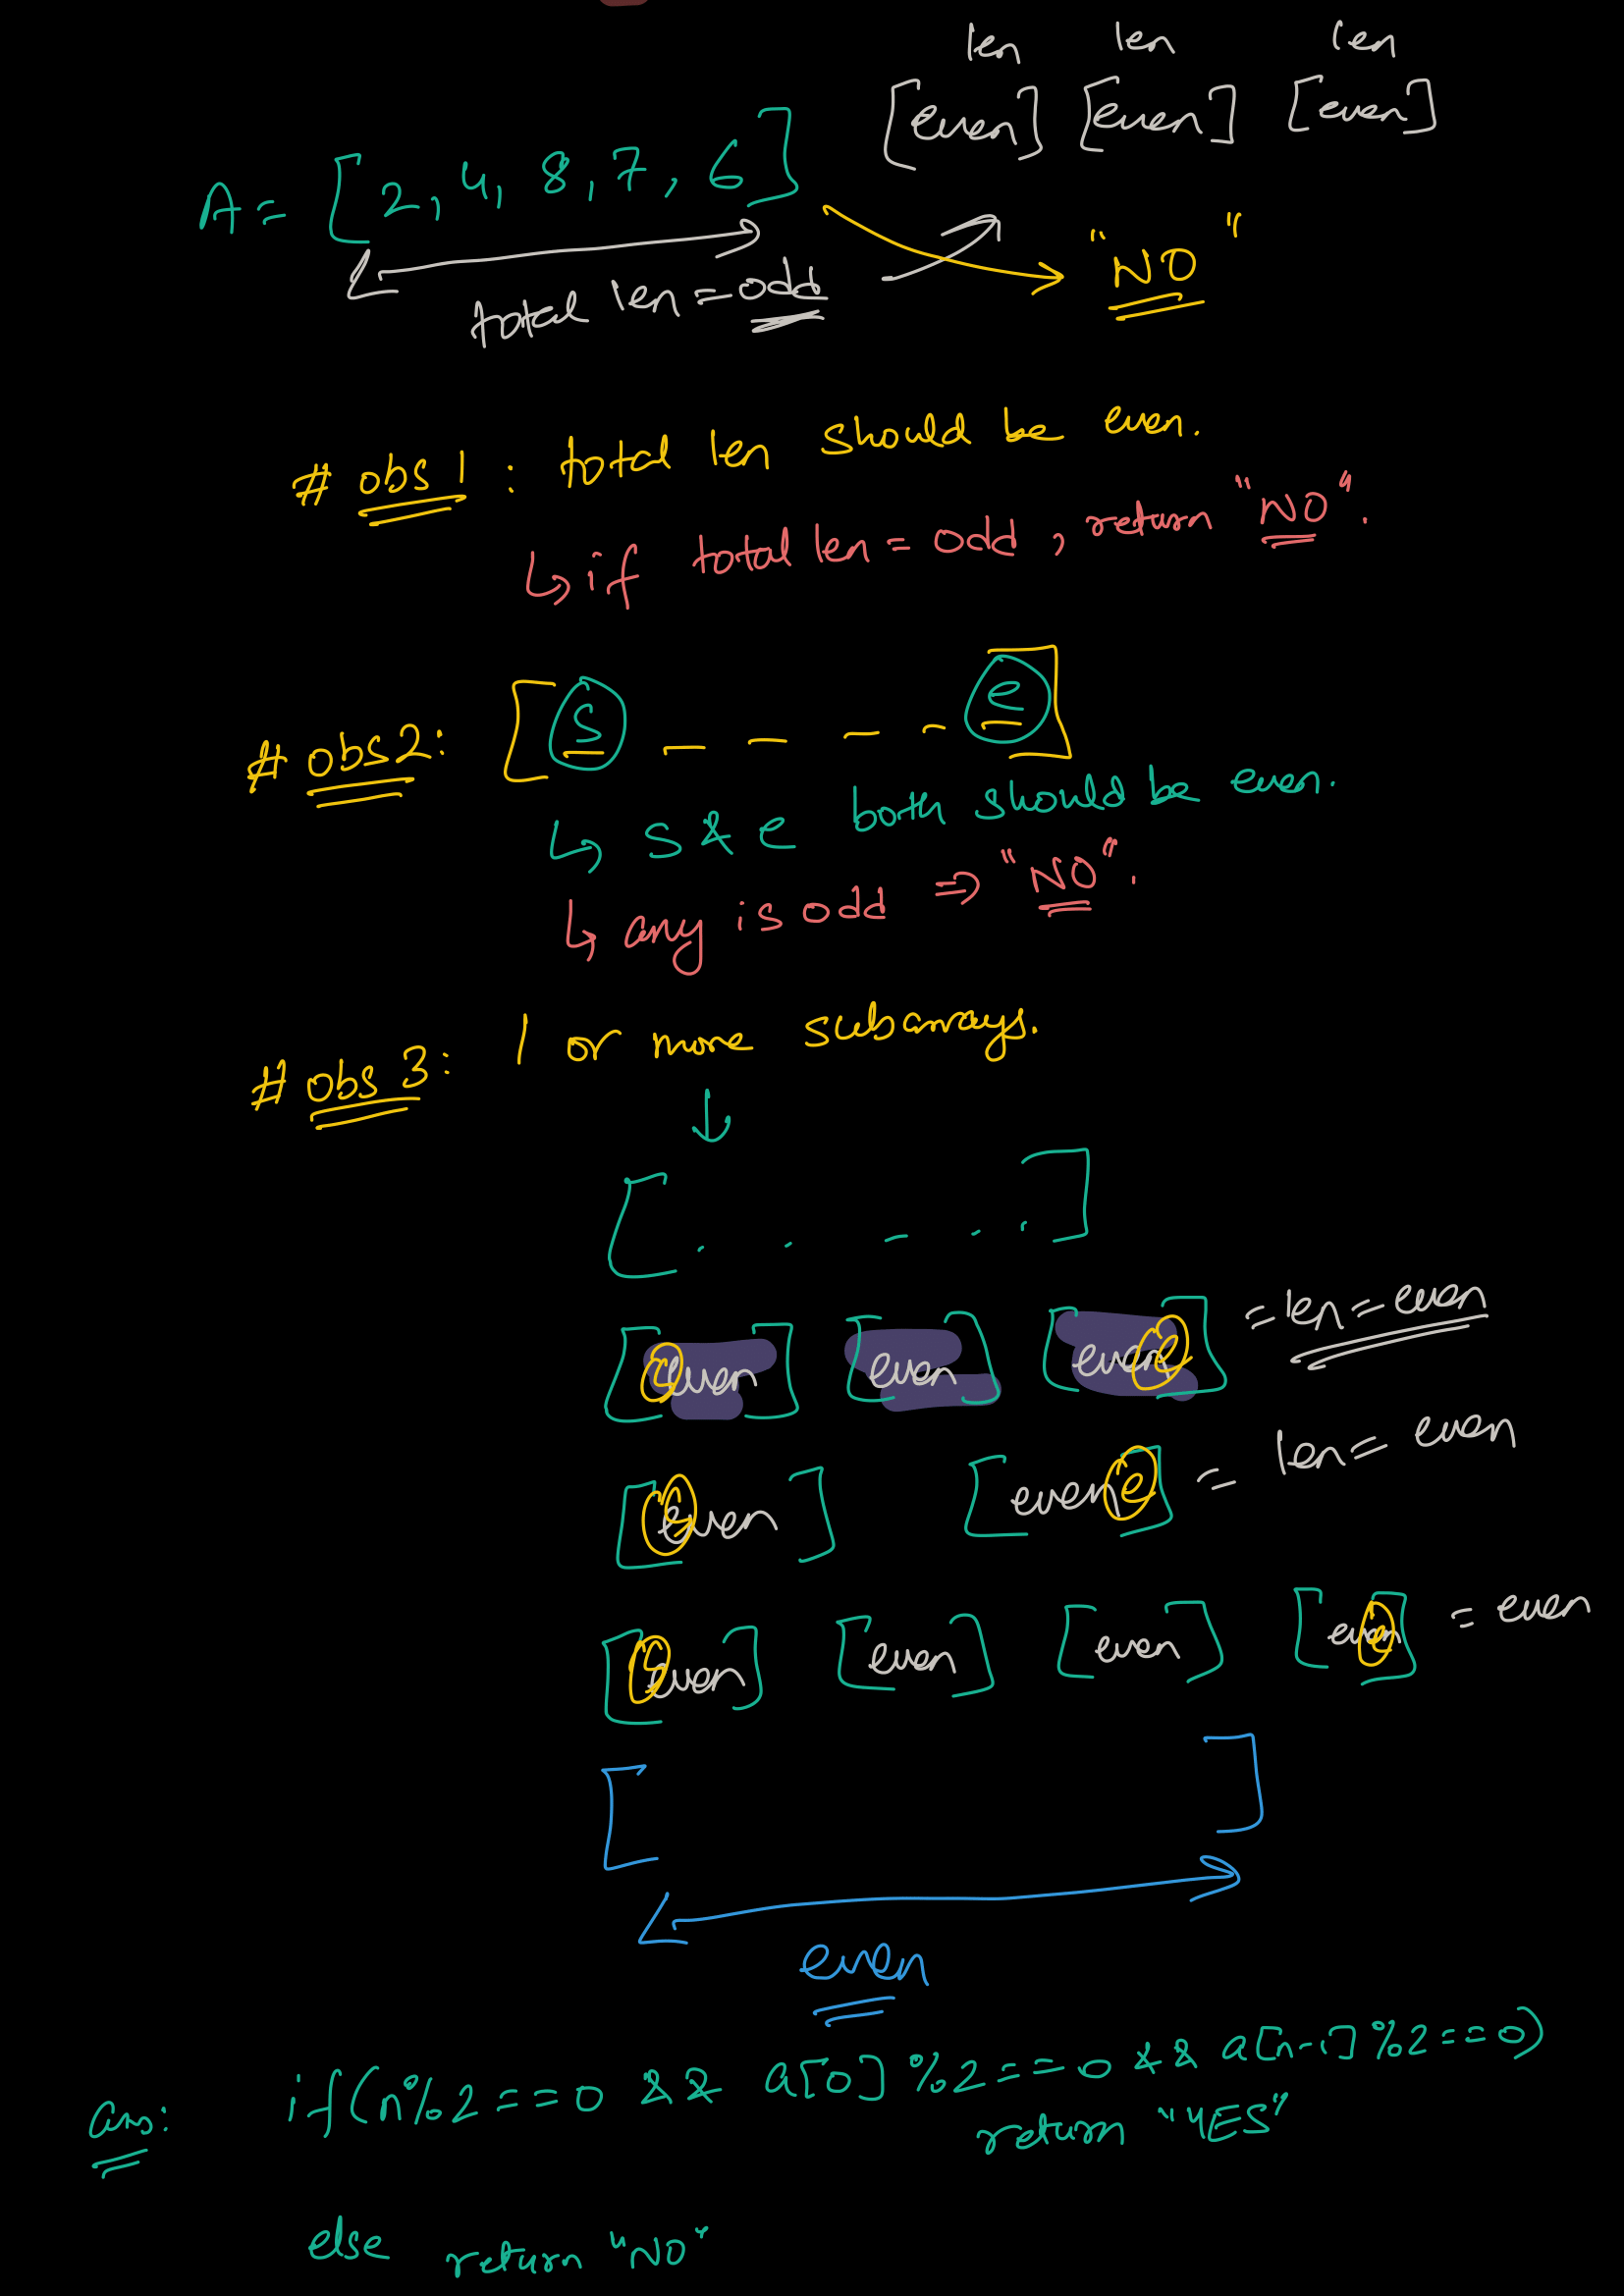 len len len
[even] [even] [even]
A = [2, 4, 8, 7, 6]
total len = odd
"NO"
# obs 1 : total len should be even.
↳ if total len = odd , return "NO".
# obs 2: [s _ _ _ _ e]
↳ s & e both should be even.
↳ any is odd ⇒ "NO".
# obs 3: 1 or more subarrays.
↓
[. . _ . .]
[even] [even] [even e] = len = even
[even] [even e] = len = even
[even] [even] [even] [even e] = even
[ ]
even
ans: if(n%2==0 && a[0]%2==0 && a[n-1]%2==0)
return "YES"
else return "NO"